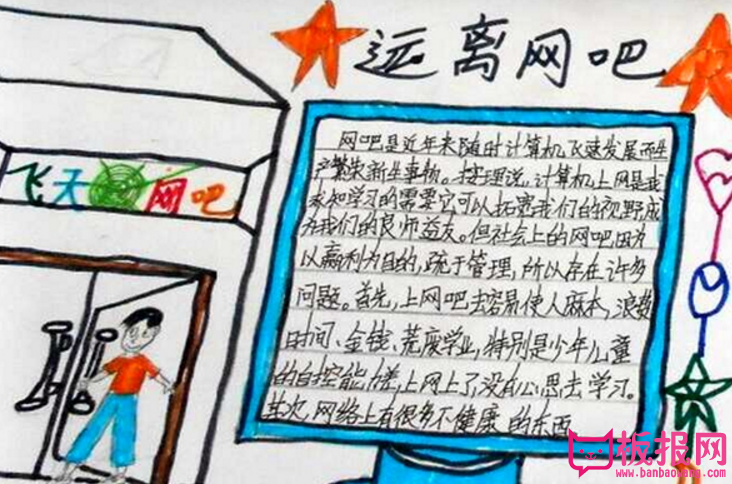 远离网吧
飞天网吧
网吧是近年来随时计算机飞速发展而生
产繁荣新生事物。按理说,计算机上网是我
求知学习的需要它可以拓宽我们的视野成
为我们的良师益友。但社会上的网吧因为
以赢利为目的,疏于管理,所以存在许多
问题。首先,上网吧去容易使人麻木,浪费
时间、金钱、荒废学业,特别是少年儿童
的自控能,上网上了没有心思去学习。
其次,网络上有很多不健康的东西
板报网
www.banbaowang.com